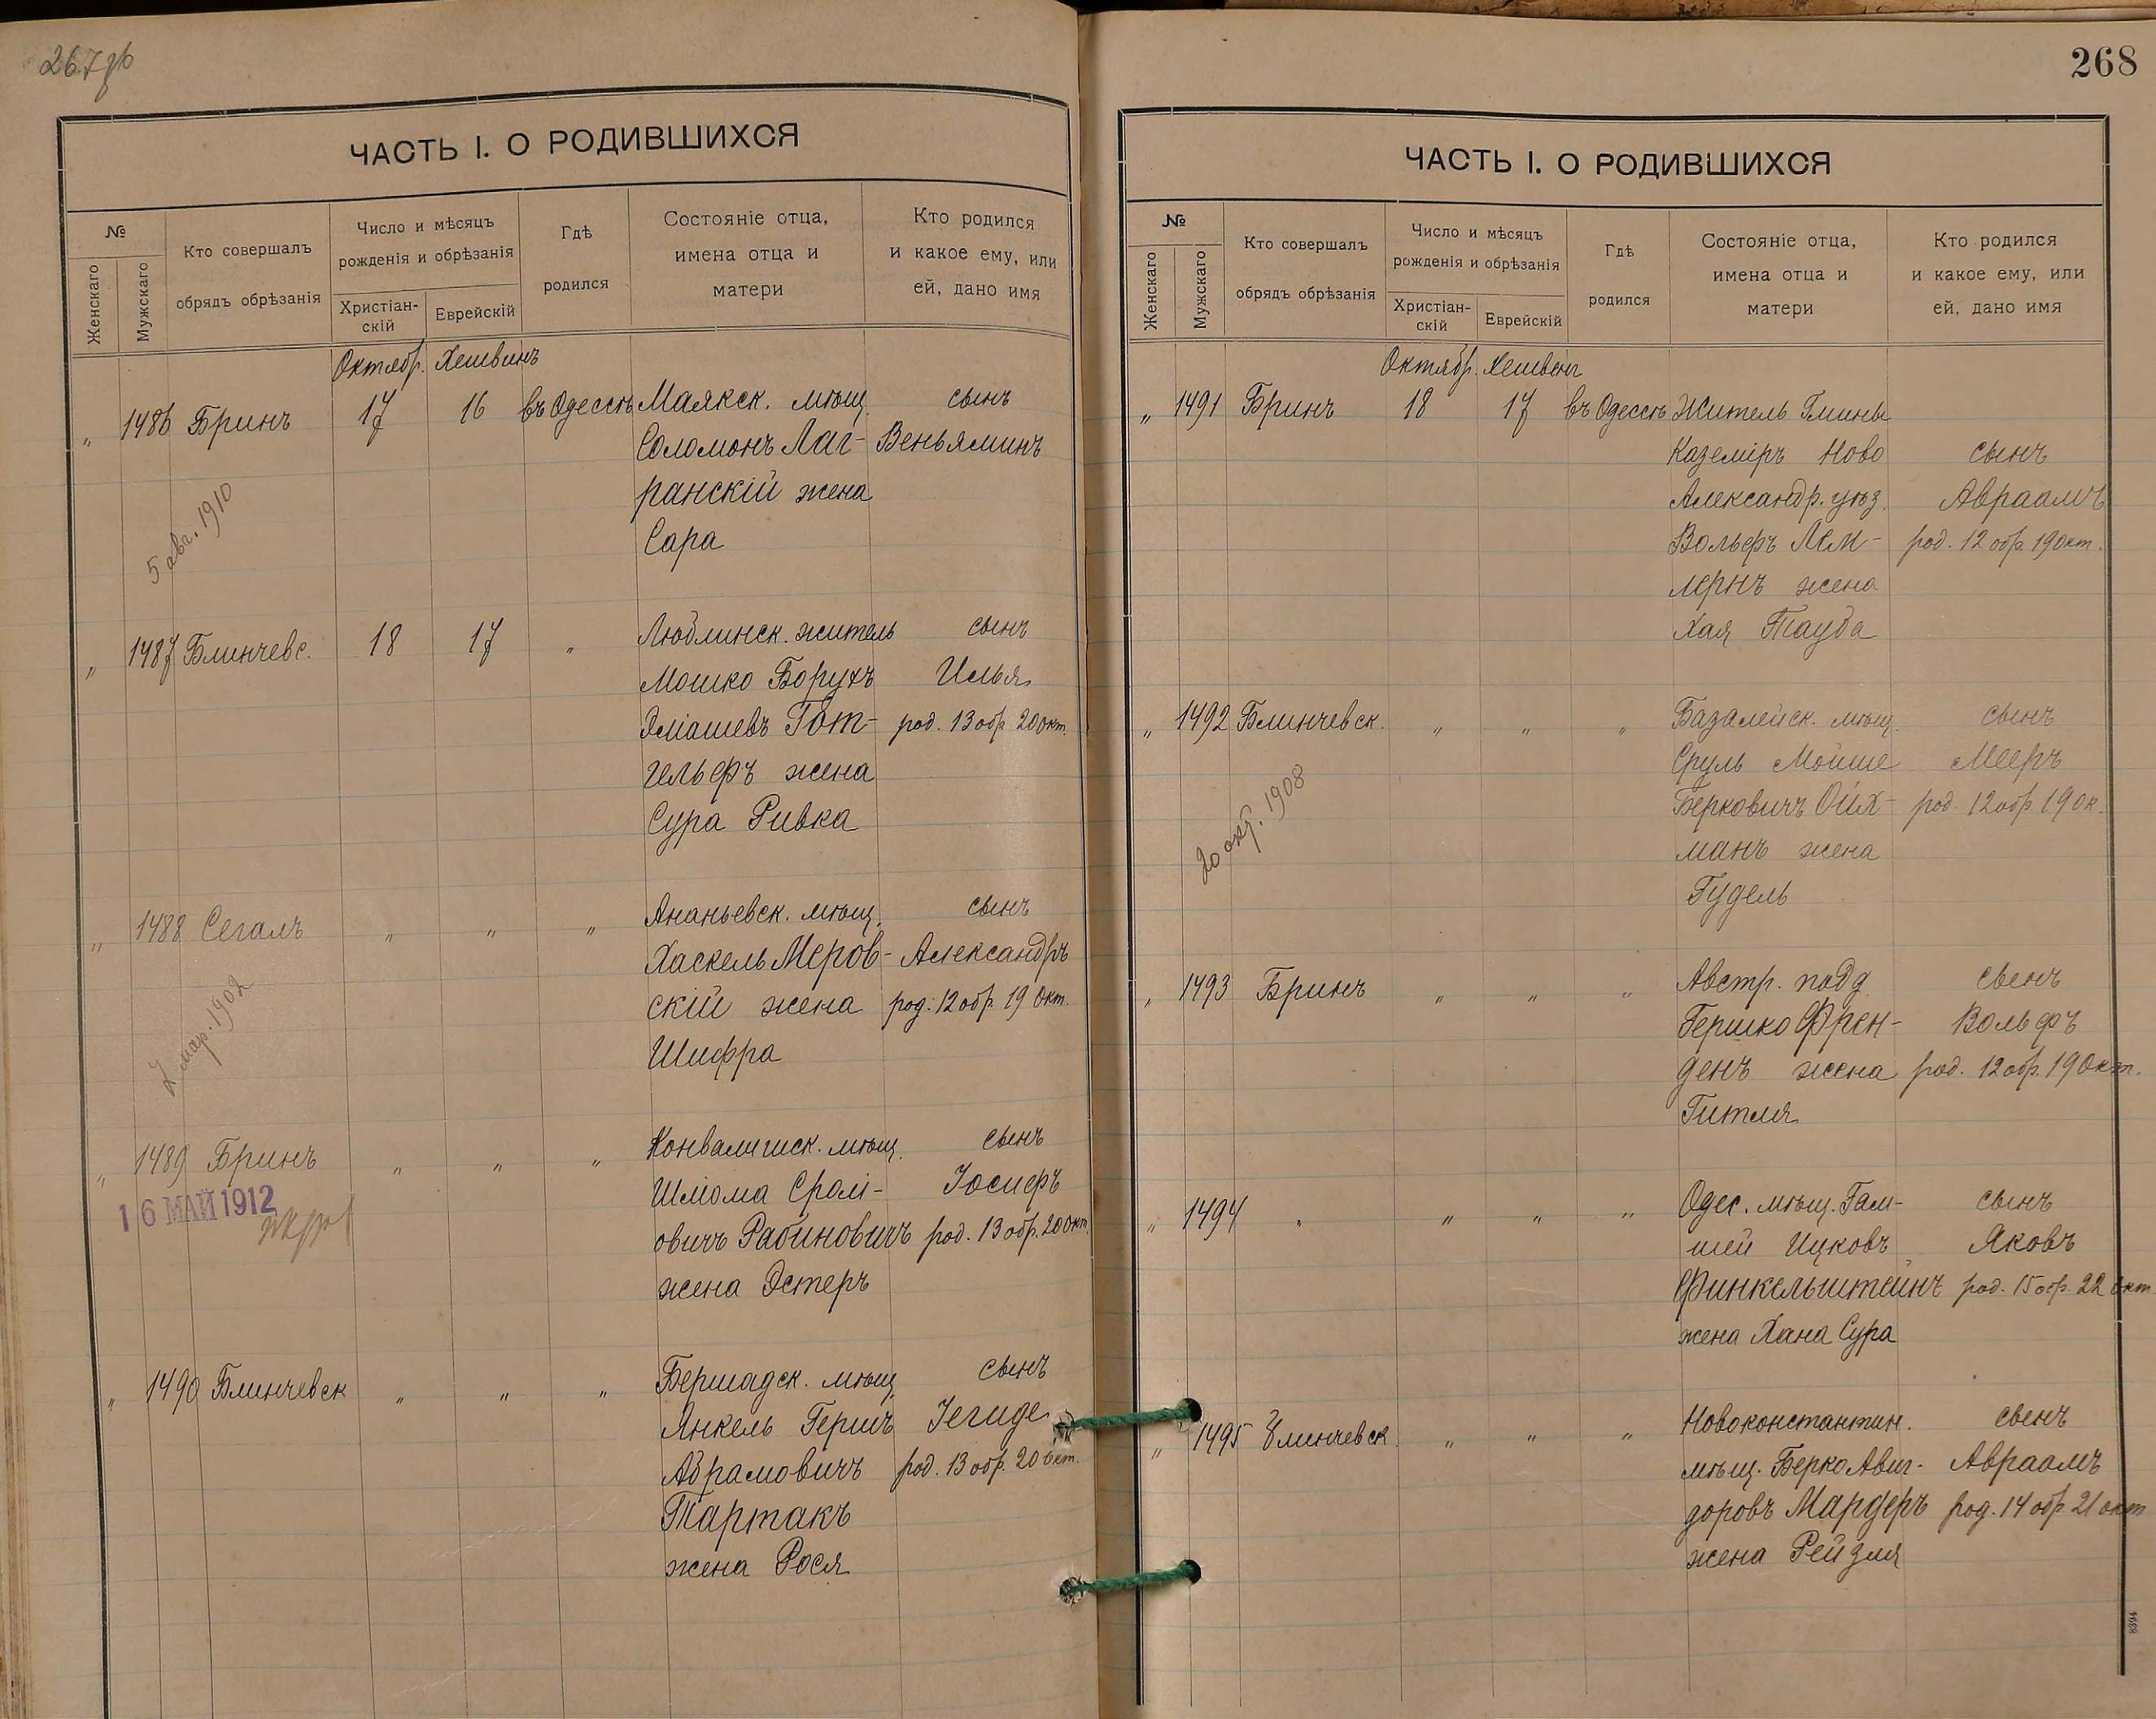 267об
ЧАСТЬ I. О РОДИВШИХСЯ
№
Женскаго
Мужскаго
Кто совершалъ
обрядъ обрѣзанія
Число и мѣсяцъ
рожденія и обрѣзанія
Христіан-
скій
Еврейскій
Гдѣ
родился
Состояніе отца,
имена отца и
матери
Кто родился
и какое ему, или
ей, дано имя
Октябр. Хешвинъ
„ 1486 Бринъ 17 16 въ Одессѣ Маякск. мѣщ. сынъ
Соломонъ Лаг- Веньяминъ
ранскій жена
Сара
5 авг. 1910
„ 1487 Блинчевс. 18 17 „ Люблинск. житель сынъ
Мошко Борухъ Илья
Эліашевъ Гот- род. 13 обр 20 окт.
гельфъ жена
Сура Ривка
„ 1488 Сегалъ „ „ „ Ананьевск. мѣщ. сынъ
Хаскель Меров- Александръ
скій жена род. 12 обр. 19 Окт.
Шифра
2 мар. 1902
„ 1489 Бринъ „ „ „ Конвалишск. мѣщ. сынъ
Шліома Сролі- Іосифъ
овичъ Рабиновичъ род. 13 обр. 20 окт.
жена Эстеръ
16 МАЙ 1912
„ 1490 Блинчевск „ „ „ Бершадск. мѣщ. сынъ
Янкель Гершъ Іегиде
Абрамовичъ род. 13 обр. 20 окт.
Тартакъ
жена Рося
268
ЧАСТЬ I. О РОДИВШИХСЯ
№
Женскаго
Мужскаго
Кто совершалъ
обрядъ обрѣзанія
Число и мѣсяцъ
рожденія и обрѣзанія
Христіан-
скій
Еврейскій
Гдѣ
родился
Состояніе отца,
имена отца и
матери
Кто родился
и какое ему, или
ей, дано имя
Октябр. Хешвенъ
„ 1491 Бринъ 18 17 въ Одессѣ Житель Гмины
Каземіръ Ново сынъ
Александр. уѣз. Авраамъ
Вольфъ Лем- род. 12 обр. 19 окт.
лернъ жена
Хая Тауба
„ 1492 Блинчевск. „ „ „ Базалейск. мѣщ. сынъ
Сруль Мойше Мееръ
Берковичъ Ойх- род. 12 обр. 19 ок.
манъ жена
Гудель
20 окт. 1908
„ 1493 Бринъ „ „ „ Австр. подд. сынъ
Гершко Френ- Вольфъ
денъ жена род. 12 обр. 19 Окт.
Гитля
„ 1494 „ „ „ „ Одес. мѣщ. Гам-
шей Ицковъ сынъ Яковъ
Финкельштейнъ род. 15 обр. 22 окт.
жена Хана Сура
„ 1495 Блинчевск. „ „ „ Новоконстантин. сынъ
мѣщ. Берко Авиг- Авраамъ
доровъ Мардеръ род. 14 обр 21 окт
жена Рейзля
8394